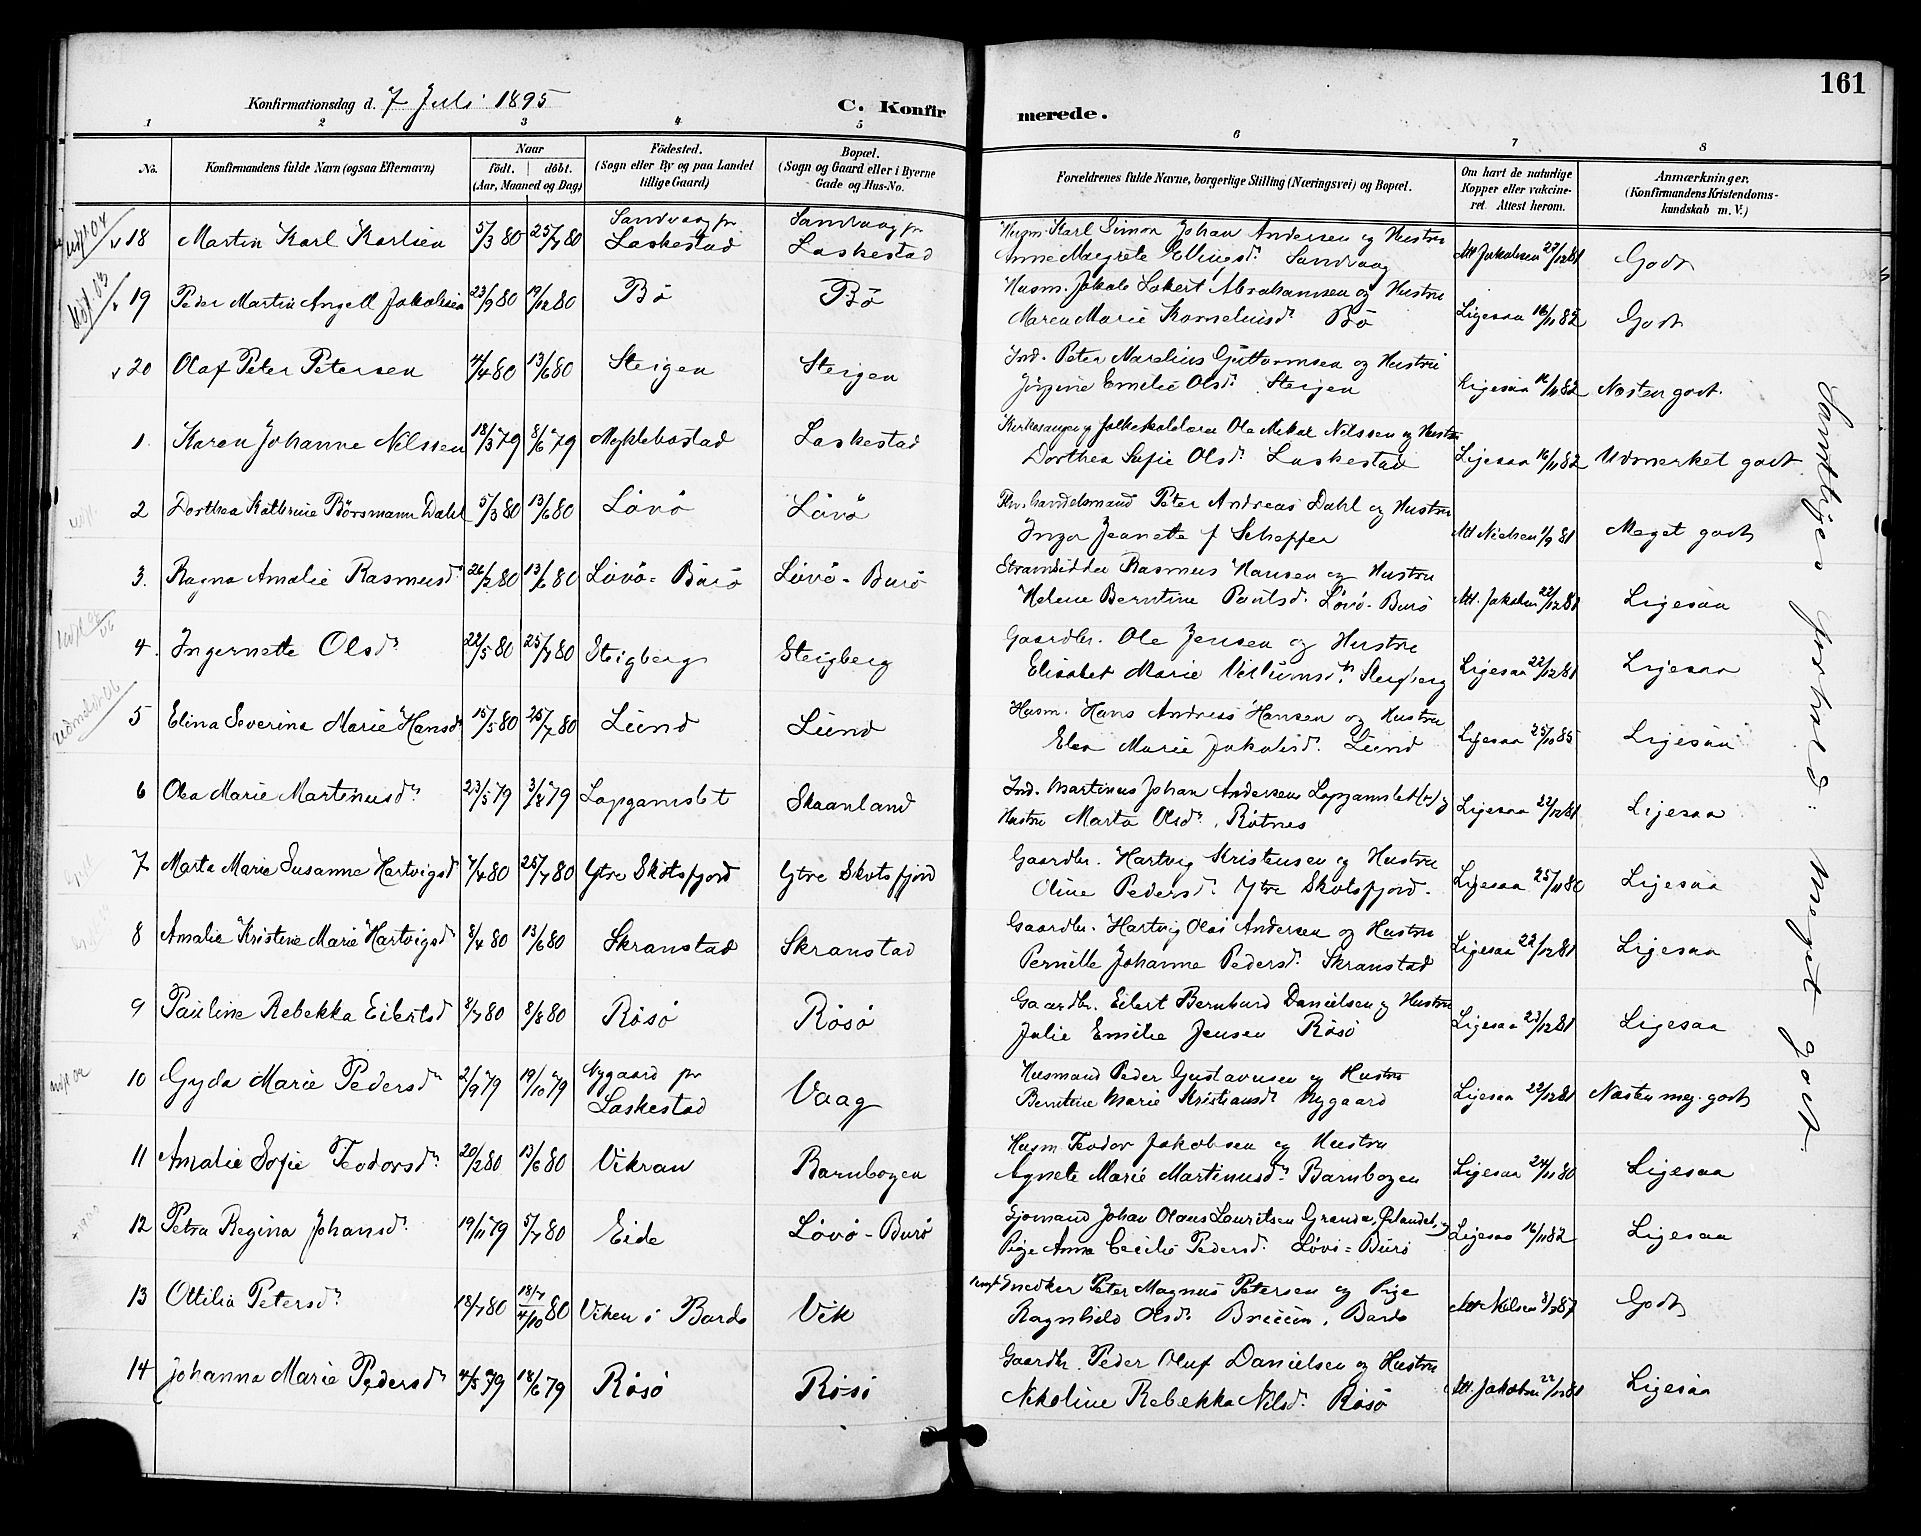 161
Konfirmationsdag d. 7 Juli 1895
C. Konfirmerede.
1 2 3 4 5 6 7 8
No.
Konfirmandens fulde Navn (ogsaa Efternavn)
Naar
født. døbt.
(Aar, Maaned og Dag)
Fødested.
(Sogn eller By og paa Landet
tillige Gaard)
Bopæl.
(Sogn og Gaard eller i Byerne
Gade og Hus-No.
Forældrenes fulde Navne, borgerlige Stilling (Næringsvei) og Bopæl.
Om havt de naturlige
Kopper eller vakcine-
ret. Attest herom.
Anmærkninger.
(Konfirmandens Kristendoms-
kundskab m. V.)
18 Martin Karl Karlsen 5/3 80 25/7 80 Sandvaag pr Laskestad Sandvaag pr Laskestad
Husm. Karl Simon Johan Andersen og Hustru
Anne Margrete Ellingsd. Sandvaag Att Jakobsen 22/12 81 Godt
19 Peder Martin Angell Jakobsen 23/9 80 19/12 80 Bö Bö
Husm. Jakob Lokert Abrahamsen og Hustru
Maren Marie Korneliusd. Bö Ligesaa 16/11 82 Godt
20 Olaf Peter Petersen 4/4 80 13/6 80 Steigen Steigen
Ind. Peter Marelius Guttormsen og Hustru
Jörgine Emilie Olsd. Steigen Ligesaa 16/11 82 Næsten godt.
1. Karen Johanne Nilssen 18/3 79 8/6 79 Myklebostad Laskestad
Kirkesanger og Folkeskolelærer Ole Mikal Nilssen og Hustru
Dorthea Sofie Olsd. Laskestad Ligesaa 16/11 82 Udmerket godt
2 Dorthea Kathrine Börsmann Dahl 5/3 80 13/6 80 Lövö Lövö
handelsmand Peter Andreas Dahl og Hustru
Inga Jeanette f Scheffer Att Nielsen 1/9 81 Meget godt
3. Ragna Amalie Rasmusd. 26/2 80 13/6 80 Lövö-Burö Lövö-Burö
Strandsidder Rasmus Hansen og Hustru
Helene Berntine Paulsd. Lövö-Burö Att. Jakobsen 22/12 81 Ligesaa
4. Ingernette Olsd. 22/5 80 25/7 80 Steigberg Steigberg
Gaardbr. Ole Jensen og Hustru
Elisabet Marie Steigberg Ligesaa 22/12 81 Ligesaa
5 Elina Severina Marie Hansd. 15/5 80 25/7 80 Lund Lund
Husm. Hans Andreas Hansen og Hustru
Elen Marie Jakobsd. Lund Ligesaa 25/10 85 Ligesaa
6 Olea Marie Martinusd. 23/5 79 3/8 79 Lapgamslet Skaanland
Ind. Martinus Johan Andersen Lapgamslet og
Hustru Marta Olsd. Rötnes Ligesaa 22/12 81 Ligesaa
7 Marta Marie Susanne Hartvigsd 7/4 80 25/7 80 Ytre Skotsfjord Ytre Skotsfjord
Gaardbr. Hartvig Kristensen og Hustru
Oline Pedersd. Ytre Skotsfjord. Ligesaa 25/11 80 Ligesaa
8 Amalie Kristine Marie Hartvigsd. 8/4 80 13/6 80 Skranstad Skranstad
Gaardbr. Hartvig Olai Andersen og Hustru
Pernille Johanne Pedersd. Skranstad Ligesaa 22/12 81 Ligesaa
9 Pauline Rebekka Eilertsd 8/7 80 8/8 80 Rösö Rösö
Gaardbr. Eilert Bernhard Danielsen og Hustru
Julie Emilie Jensen Rösö Ligesaa 23/12 81 Ligesaa
10 Gyda Marie Pedersd. 2/9 79 19/10 79 Nygaard pr Laskestad Vaag
Husmand Peder Gustavusen og Hustru
Berntine Marie Kristiansd. Nygaard Ligesaa 22/12 81 Næsten meg. godt
11 Amalie Sofie Teodorsd. 20/2 80 13/6 80 Vikran Barnbogen
Husm Teodor Jakobsen og Hustru
Agnete Marie Martinusd. Barnbogen Ligesaa 24/11 80 Ligesaa
12 Petra Regina Johansd. 19/11 79 5/7 80 Eide Lövö-Burö
Sjömand Johan Olaus Lauritsen Grande, Ørlandet, og
Pige Anna Cecilie Pedersd. Lövö-Burö Ligesaa 16/11 82 Ligesaa
13 Ottilia Petersd. 18/7 80 18/7 4/10 80 Viken i Bardo Vik
Snedker Peter Magnus Petersen og Pige
Ragnhild Olsd. Bardo Att Nilsen 3/7 87 Godt
14 Johanna Marie Pedersd. 4/5 79 18/6 79 Rösö Rösö
Gaardbr. Peder Oluf Danielsen og Hustru
Nikoline Rebekka Nilsd. Rösö Att. Jakobsen 22/12 81 Ligesaa
Samtlige Forhold: meget godt.